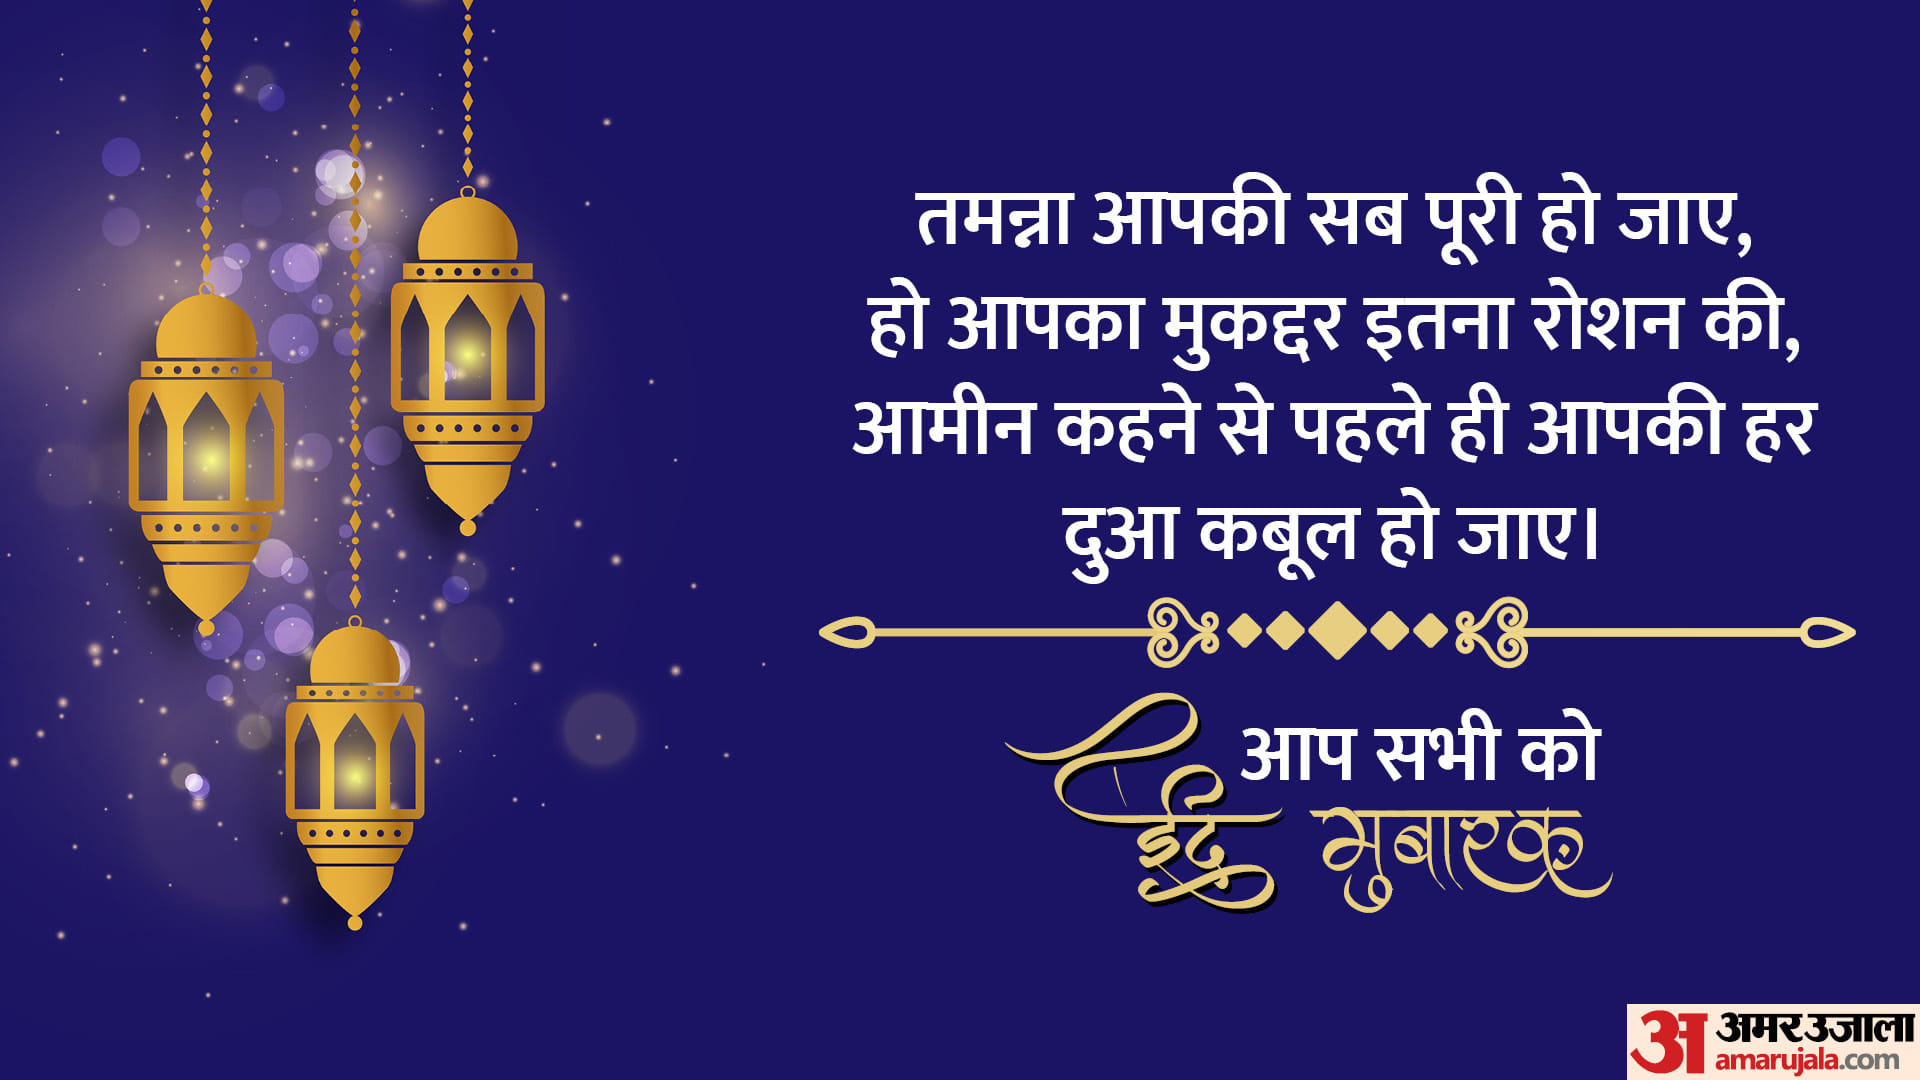 तमन्ना आपकी सब पूरी हो जाए,
हो आपका मुकद्दर इतना रोशन की,
आमीन कहने से पहले ही आपकी हर
दुआ कबूल हो जाए।
आप सभी को
ईद मुबारक
अ अमर उजाला
amarujala.com